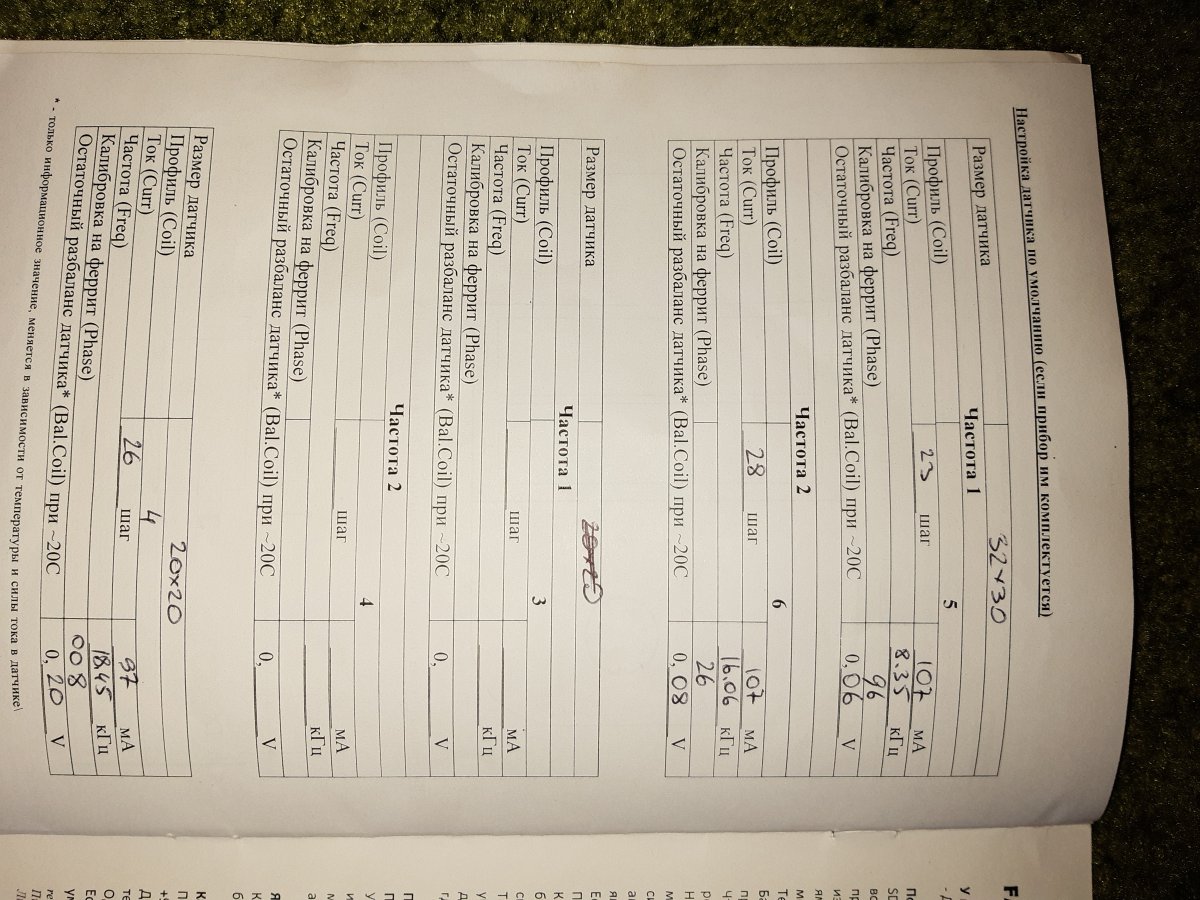 Настройка датчика по умолчанию (если прибор им комплектуется)
Размер датчика 32x30
Частота 1
Профиль (Coil) 5
Ток (Curr) 23 шаг 107 мА
Частота (Freq) 8.35 кГц
Калибровка на феррит (Phase) 96
Остаточный разбаланс датчика* (Bal.Coil) при ~20С 0,06 V
Частота 2
Профиль (Coil) 6
Ток (Curr) 28 шаг 107 мА
Частота (Freq) 16.06 кГц
Калибровка на феррит (Phase) 26
Остаточный разбаланс датчика* (Bal.Coil) при ~20С 0,08 V
Размер датчика
Частота 1
Профиль (Coil) 3
Ток (Curr) шаг мА
Частота (Freq) кГц
Калибровка на феррит (Phase)
Остаточный разбаланс датчика* (Bal.Coil) при ~20С 0, V
Частота 2
Профиль (Coil) 4
Ток (Curr) шаг мА
Частота (Freq) кГц
Калибровка на феррит (Phase)
Остаточный разбаланс датчика* (Bal.Coil) при ~20С 0, V
Размер датчика 20x20
Профиль (Coil) 4
Ток (Curr) 26 шаг 97 мА
Частота (Freq) 18.45 кГц
Калибровка на феррит (Phase) 008
Остаточный разбаланс датчика* (Bal.Coil) при ~20С 0, 20 V
* - только информационное значение, меняется в зависимости от температуры и силы тока в датчике\